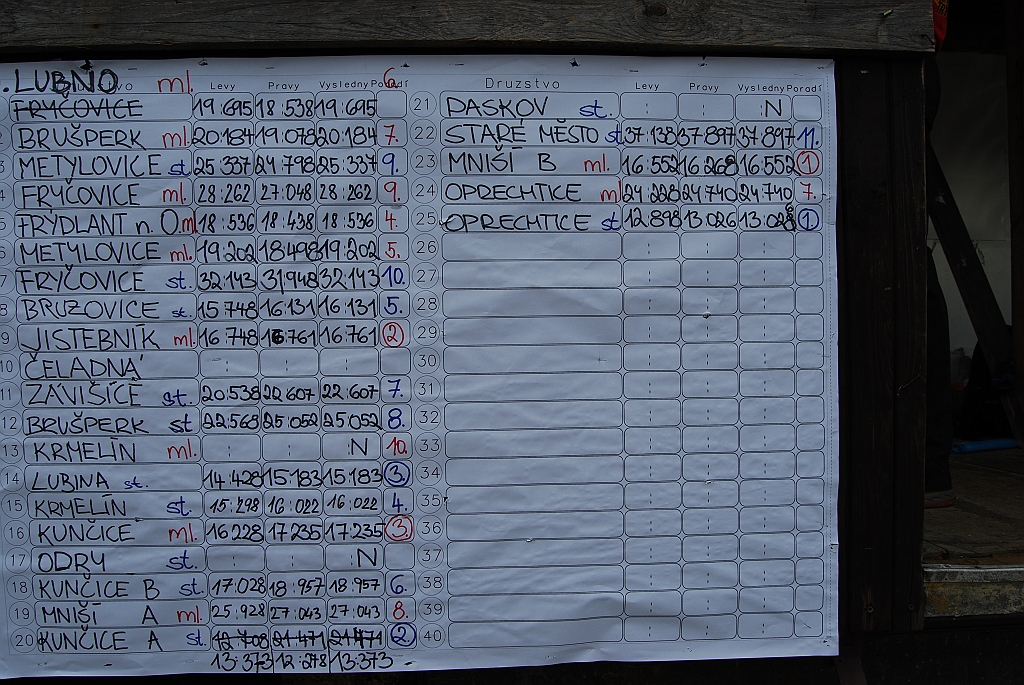 LUBNO ml. 6.
Levy Pravy Vysledny Poradi
FRYČOVICE 19:695 18:538 19:695
BRUŠPERK ml. 20:184 19:078 20:184 7.
METYLOVICE st. 25:337 24:798 25:337 9.
FRYČOVICE ml. 28:262 27:048 28:262 9.
FRÝDLANT n. O. ml. 18:536 18:438 18:536 4.
METYLOVICE ml. 19:202 18:498 19:202 5.
FRYČOVICE st. 32:143 31:948 32:143 10.
8 BRUZOVICE st. 15:748 16:131 16:131 5.
9 JISTEBNÍK ml. 16:748 16:761 16:761 2
10 ČELADNÁ
11 ZÁVIŠICE st. 20:538 22:607 22:607 7.
12 BRUŠPERK st 22:568 25:052 25:052 8.
13 KRMELÍN ml. N 10.
14 LUBINA st. 14:428 15:183 15:183 3
15 KRMELÍN st. 15:298 16:022 16:022 4.
16 KUNČICE ml. 16:228 17:235 17:235 3
17 ODRY st. N
18 KUNČICE B st. 17:028 18:957 18:957 6.
19 MNIŠÍ A ml. 25:928 27:043 27:043 8.
20 KUNČICE A st. 12:708 21:471 21:471 2
13:373 12:278 13:373
Druzstvo Levy Pravy Vysledny Poradi
21 DASKOV st. N
22 STARÉ MĚSTO st 37:138 37:897 37:897 11.
23 MNIŠÍ B ml. 16:552 16:268 16:552 1
24 OPRECHTICE ml 24:228 24:740 24:740 7.
25 OPRECHTICE st 12:898 13:026 13:028 1
26
27
28
29
30
31
32
33
34
35
36
37
38
39
40